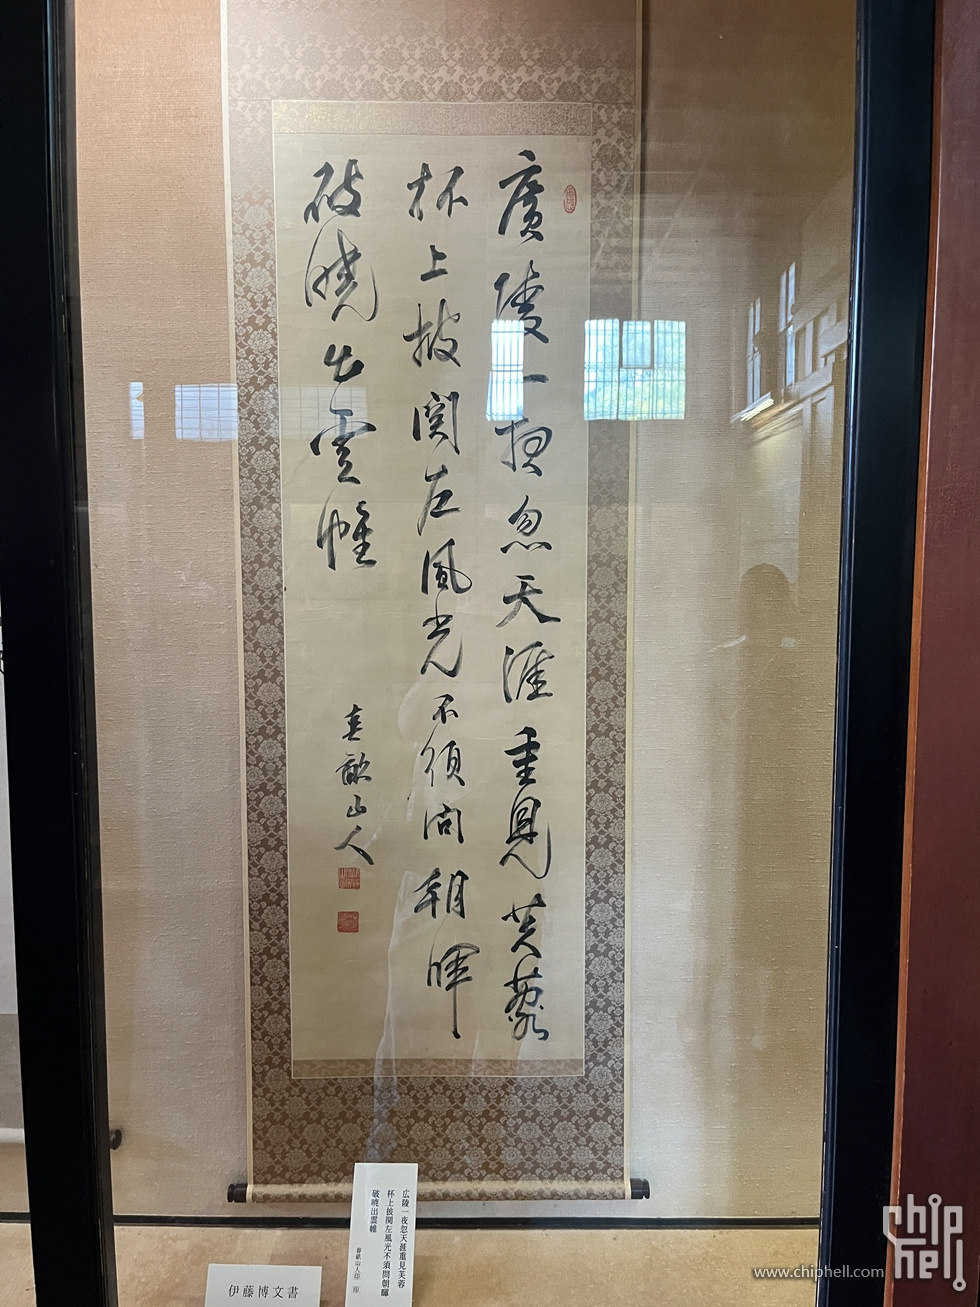 廣陵一忽天涯重見芙蓉
杯上披関左風光不須問朝暉
破曉出雲帷
春畝山人
広陵一夜忽天涯重見芙蓉
杯上披関左風光不須問朝暉
破曉出雲帷
春畝山人印 印
伊藤博文書
chip hell
www.chiphell.com